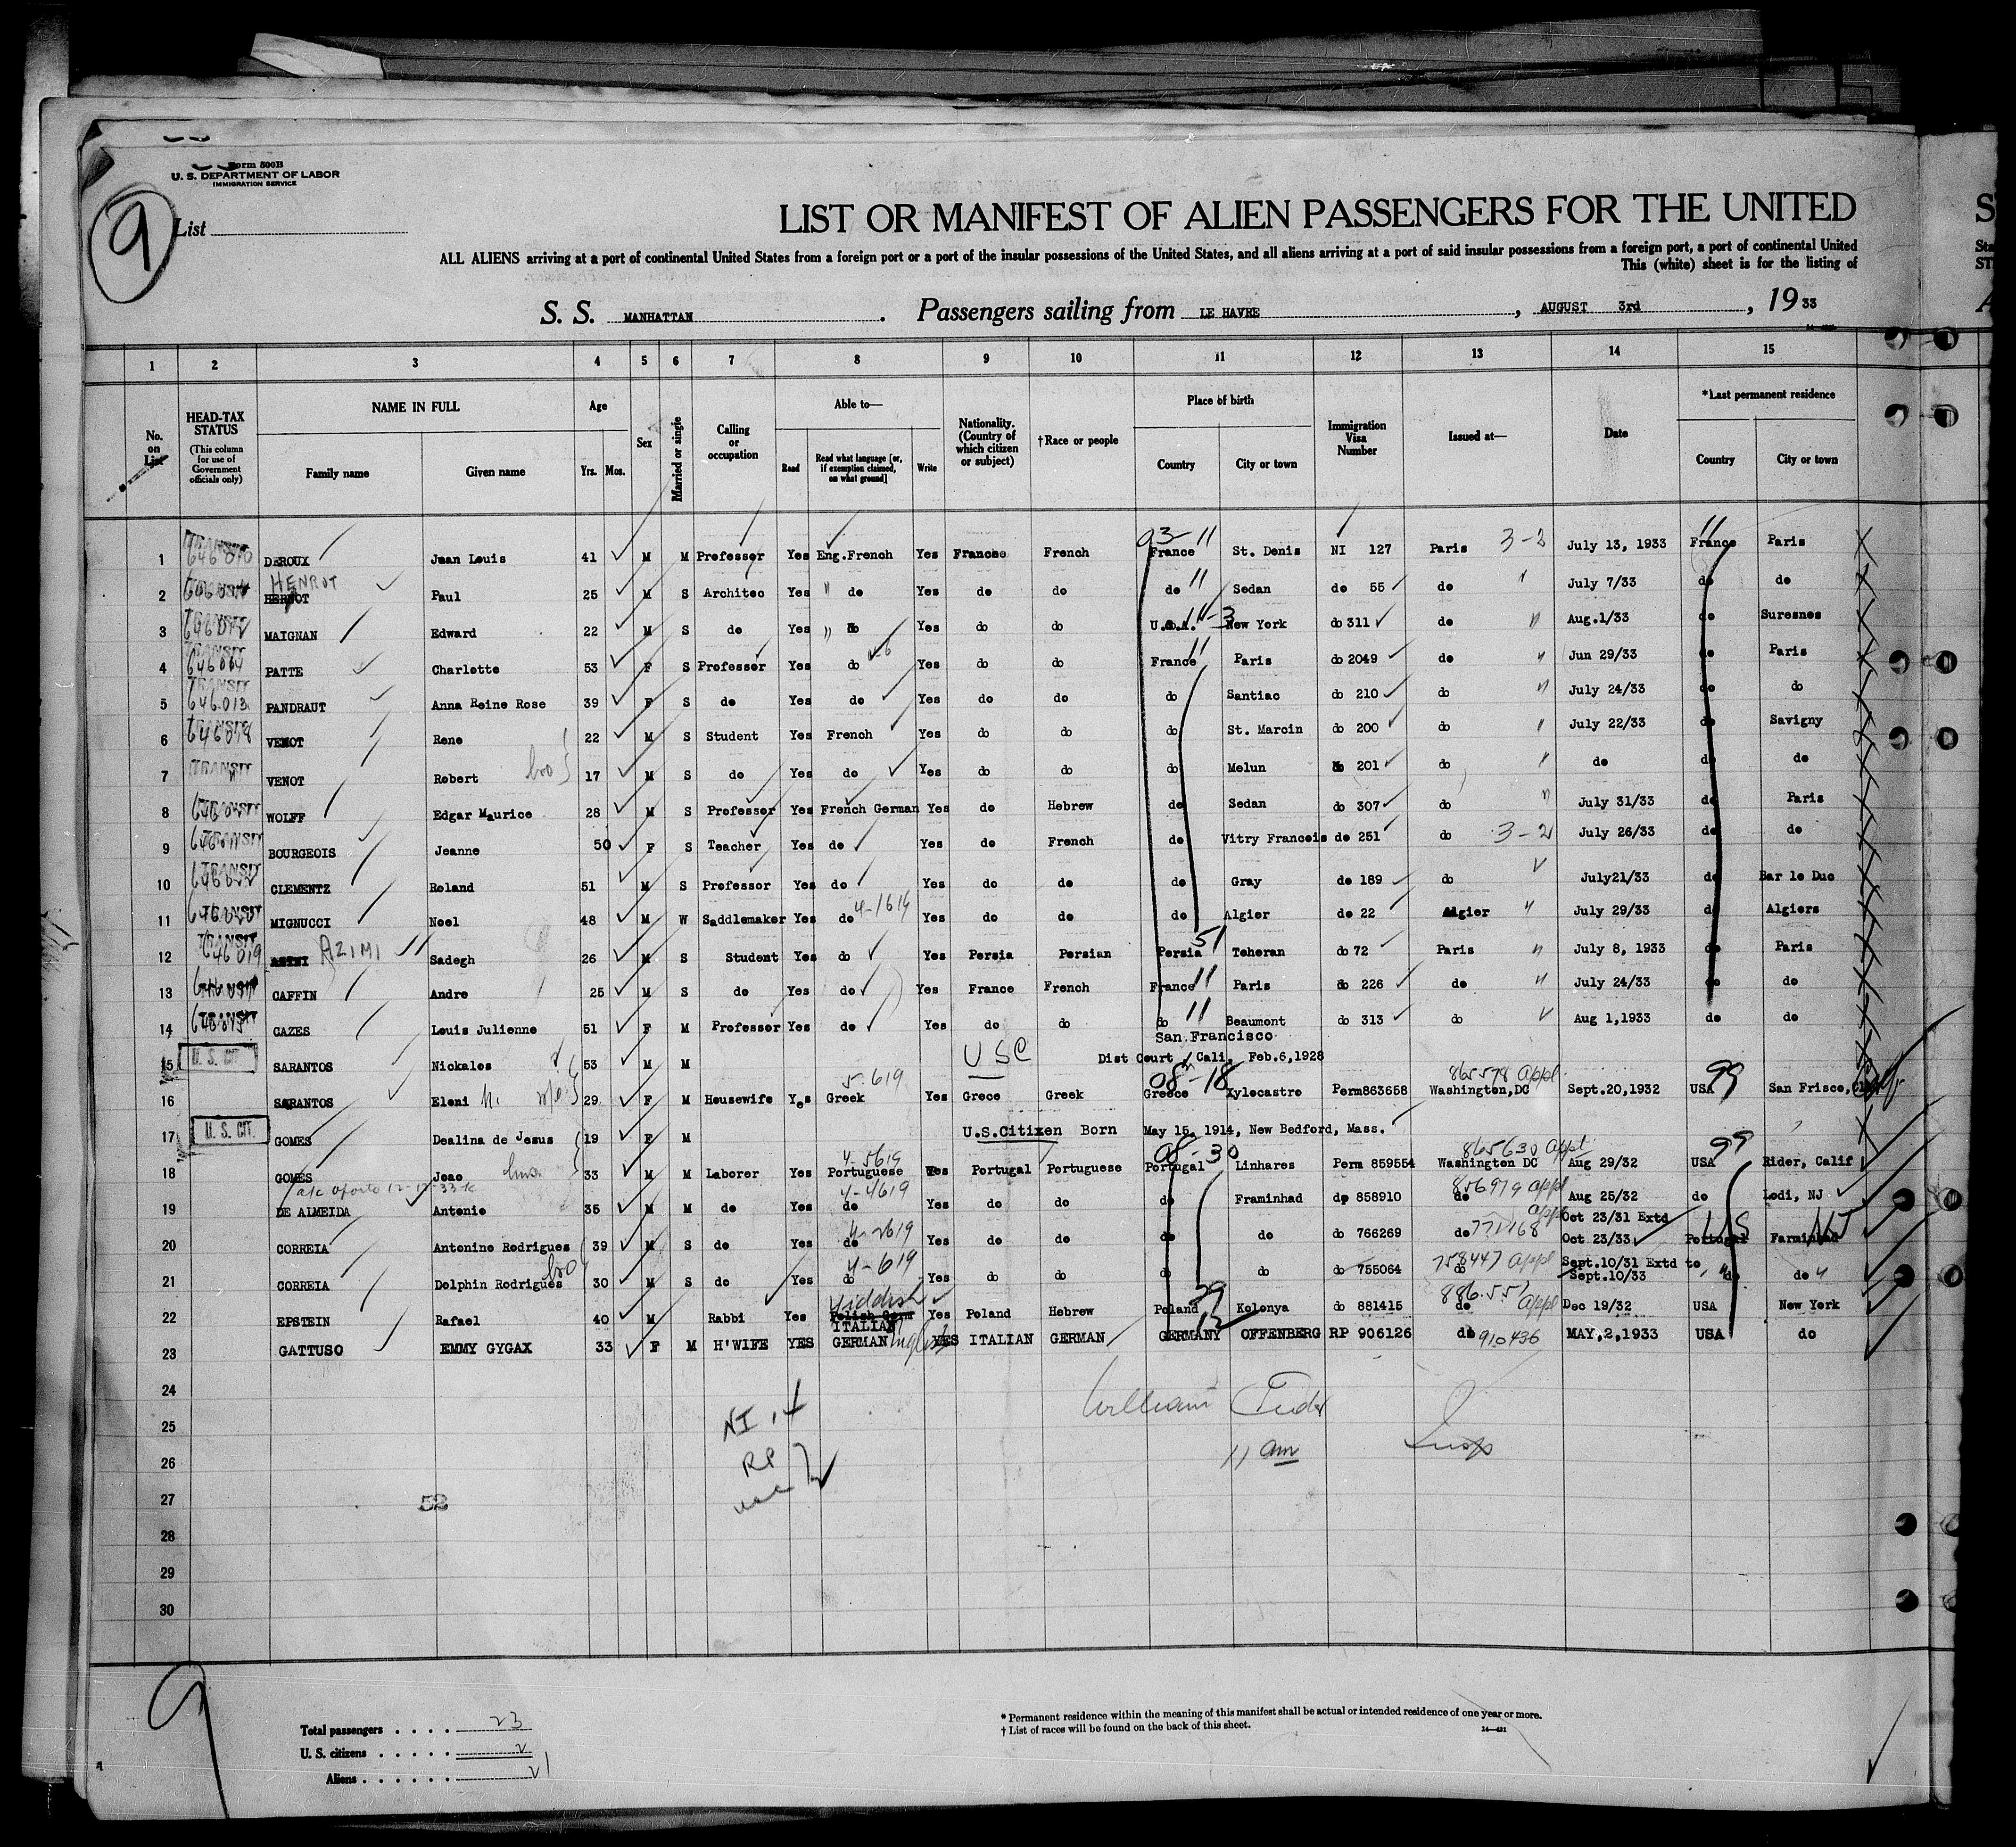 Form 500B
U. S. DEPARTMENT OF LABOR
IMMIGRATION SERVICE
9
List
LIST OR MANIFEST OF ALIEN PASSENGERS FOR THE UNITED
ALL ALIENS arriving at a port of continental United States from a foreign port or a port of the insular possessions of the United States, and all aliens arriving at a port of said insular possessions from a foreign port, a port of continental United
This (white) sheet is for the listing of
S. S. MANHATTAN. Passengers sailing from LE HAVRE, AUGUST 3rd, 1933
1 2 3 4 5 6 7 8 9 10 11 12 13 14 15
No. on List HEAD-TAX STATUS (This column for use of Government officials only) NAME IN FULL Family name Given name Age Yrs. Mos. Sex Married or single Calling or occupation Able to— Read Read what language [or, if exemption claimed, on what ground] Write Nationality. (Country of which citizen or subject) †Race or people Place of birth Country City or town Immigration Visa Number Issued at— Date *Last permanent residence Country City or town
1 TRANSIT DEROUX Jean Louis 41 M M Professor Yes Eng.French Yes France French 03-11 France St. Denis NI 127 Paris 3-2 July 13, 1933 11 France Paris
2 HENROT Paul 25 M S Architec Yes " do Yes do do do 11 Sedan do 55 do " July 7/33 do do
3 TRANSIT MAIGNAN Edward 22 M S do Yes " do Yes do do U.S.A. 11-3 New York do 311 do " Aug.1/33 do Suresnes
4 TRANSIT PATTE Charlotte 53 F S Professor Yes do Yes do do France 11 Paris do 2049 do " Jun 29/33 do Paris
5 TRANSIT 646013 PANDRAUT Anna Reine Rose 39 F S do Yes do Yes do do do Santiac do 210 do " July 24/33 do do
6 VENOT Rene 22 M S Student Yes French Yes do do do St. Marcin do 200 do " July 22/33 do Savigny
7 TRANSIT VENOT Robert bro 17 M S do Yes do Yes do do do Melun do 201 do " do do do
8 WOLFF Edgar Maurice 28 M S Professor Yes French German Yes do Hebrew do Sedan do 307 do " July 31/33 do Paris
9 TRANSIT BOURGEOIS Jeanne 50 F S Teacher Yes do Yes do French do Vitry Francois do 251 do 3-2 July 26/33 do do
10 TRANSIT CLEMENTZ Roland 51 M S Professor Yes do Yes do do do Gray do 189 do July21/33 do Bar le Duc
11 TRANSIT MIGNUCCI Noel 48 M W Saddlemaker Yes do Yes do do do Algier do 22 Algier " July 29/33 do Algiers
12 TRANSIT 646019 AZIMI Sadegh 26 M S Student Yes do Yes Persia Persian Persia 51 Teheran do 72 Paris " July 8, 1933 do Paris
13 CAFFIN Andre 25 M S do Yes do Yes France French France 11 Paris do 226 do " July 24/33 do do
14 TRANSIT CAZES Louis Julienne 51 F M Professor Yes do Yes do do do 11 Beaumont do 313 do Aug 1,1933 do do
15 U. S. CIT. SARANTOS Nickales 53 M M USC San Francisco Dist Court, Cali, Feb.6,1928
16 SARANTOS Eleni 29 F M Housewife Yes 5.619 Greek Yes Grece Greek 08-18 Greece Xylocastro Perm863658 Washington,DC 865578 appl Sept.20,1932 USA 99 San Frisco,
17 U. S. CIT. GOMES Dealina de Jesus 19 F M U.S.Citizen Born May 15, 1914, New Bedford, Mass.
18 GOMES Joao 33 M M Laborer Yes 4-5619 Portuguese Yes Portugal Portuguese 08-30 Portugal Linhares Perm 859554 Washington DC 865630 appl Aug 29/32 USA 99 Rider, Calif
19 DE ALMEIDA Antonio 35 M M do Yes 4-4619 do Yes do do do Framinhad do 858910 do 856979 appl Aug 25/32 do Lodi, NJ
20 CORREIA Antonino Rodrigues 39 M S do Yes 4-2619 do Yes do do do do do 766269 do 771168 appl Oct 23/31 Extd Oct 23/33 Portugal US Farminhad NJ
21 CORREIA Delphin Rodrigues bro 30 M S do Yes 4-619 do Yes do do do do do 755064 do 758447 appl Sept.10/31 Extd to Sept.10/33 do do
22 EPSTEIN Rafael 40 M Rabbi Yes Yiddish Polish Germ Yes Poland Hebrew Poland Kolonya do 881415 do appl Dec 19/32 USA New York
23 GATTUSO EMMY GYGAX 33 F M H'WIFE YES ITALIAN GERMAN English YES ITALIAN GERMAN GERMANY OFFENBERG RP 906126 do 910436 MAY,2,1933 USA do
24
25
26
27
28
29
30
NI 14
RP
William
11 am
Insp
52
9
Total passengers . . . . 23
U. S. citizens . . . . . 2
Aliens . . . . . . 21
* Permanent residence within the meaning of this manifest shall be actual or intended residence of one year or more.
† List of races will be found on the back of this sheet.
14—491